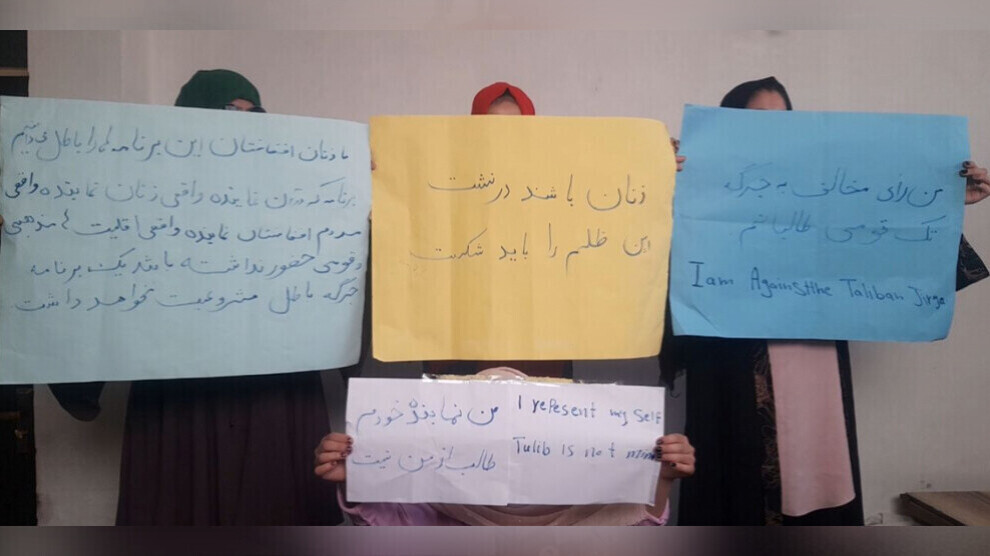 ما زنان افغانستان این برنامه ها را باطل میدانیم
برنامه که درآن نماینده واقعی زنان نماینده واقعی
مردم افغانستان نماینده واقعی اقلیت های مذهبی
و قومی حضور نداشته باشد یک برنامه
باطل مشروعیت نخواهد داشت
زنان باشند در نشست
این ظلم را باید شکست
من رای مخالف به جرگه
تک قومی طالبا
I am Against the Taliban Jirga
من نماینده خودم
طالب از من نیست
I repesent my self
Tulib is not mine